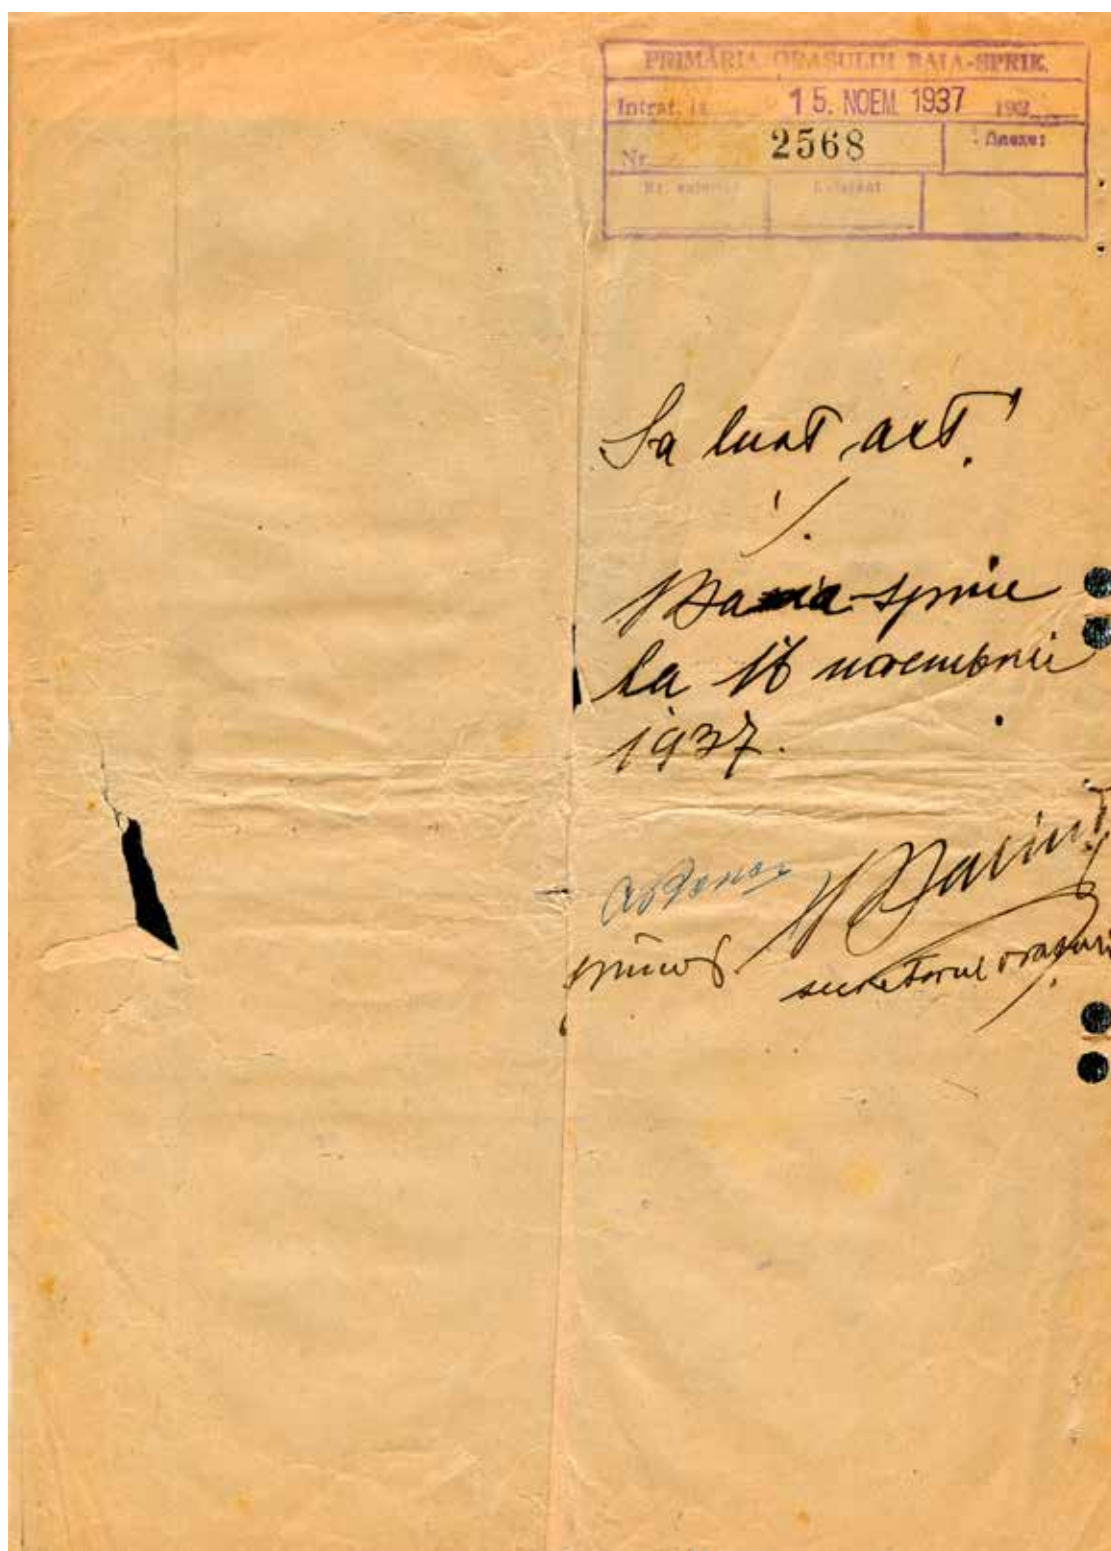 PRIMĂRIA ORAȘULUI BAIA-SPRIE.
Intrat, la 15. NOEM. 1937 192
Nr. 2568 Anexe:
Nr. exterior
Sa luat act.
Baia-sprie
la 16 novembrie
1937.
primar.
secretarul orașului